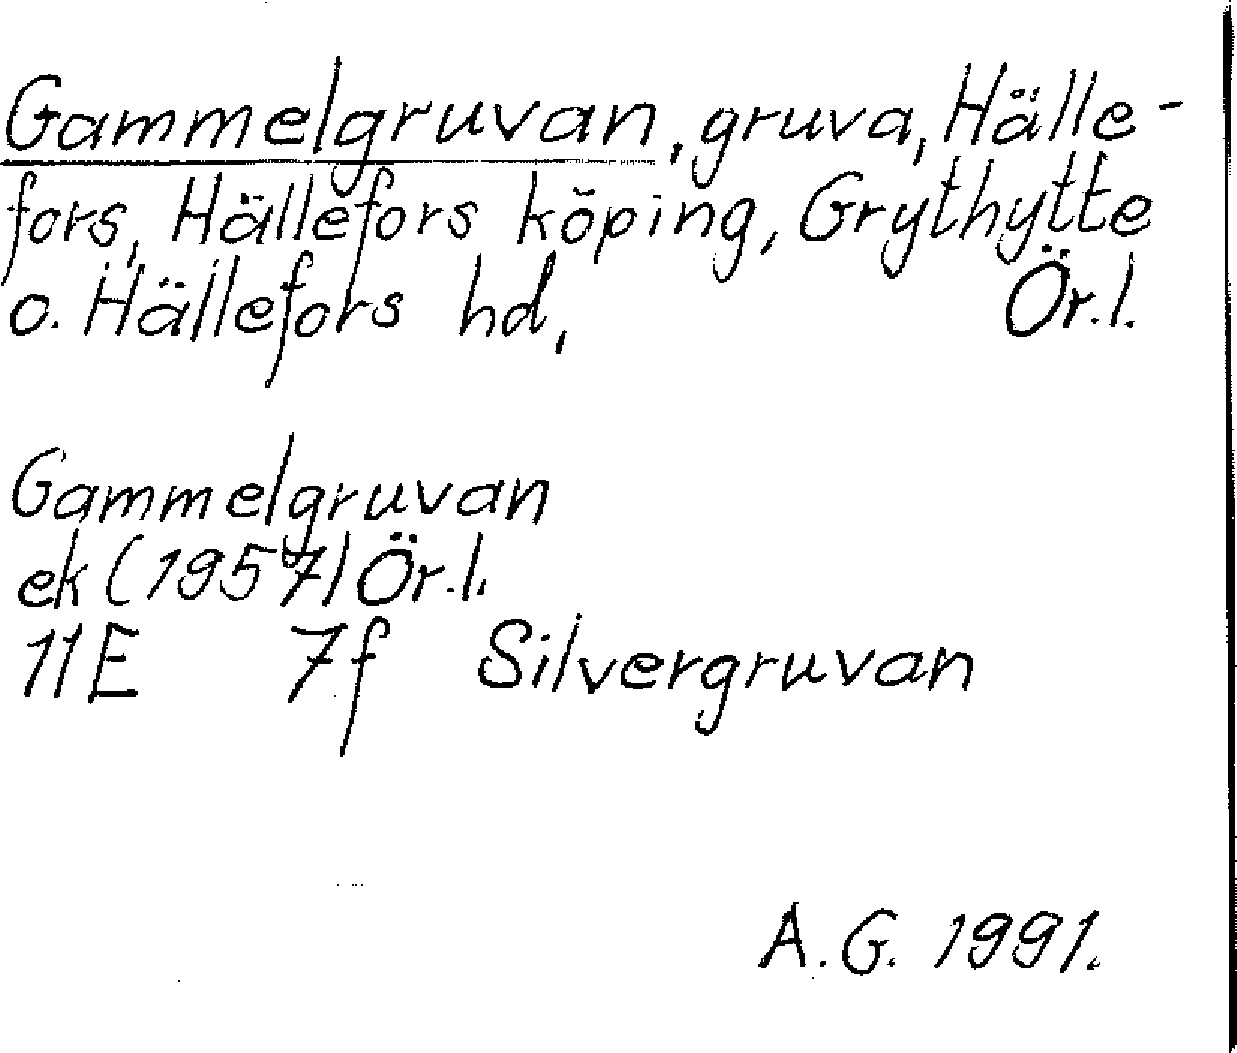 Gammelgruvan, gruva, Hälle-
fors, Hällefors köping, Grythytte
o. Hällefors hd, Ör.l.
Gammelgruvan
ek (1957) Ör.l.
11E 7f Silvergruvan
A.G. 1991.